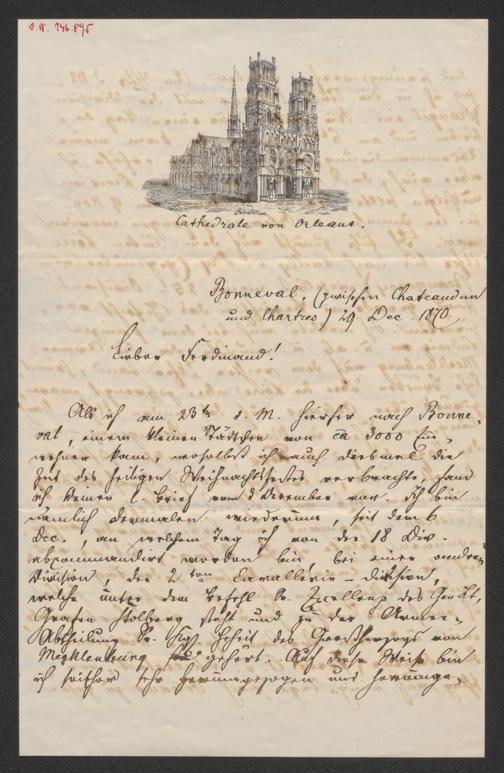 J.N. 246.895
Cathedrale von Orleans.
Bonneval, (zwischen Chateaudun
und Chartres) 29 Dec. 1870.
Lieber Ferdinand!
Als ich am 23ten d. M. hierher nach Bonne-
val, einem kleinen Städtchen von ca 3000 Ein-
wohner kam, woselbst ich auch diesmal die
Zeit des heiligen Weihnachtsfestes verbrachte, fand
ich Deinen l. Brief vom 3 Dezember vor. Ich bin
nämlich dermalen wiederum, seit dem 6
Dec., an welchem Tag ich von der 18 Div.
abcommandirt worden bin, bei einer andren
Division, der 2ten Cavallerie-division,
welche unter dem Befehl Sr. Excellenz des
Grafen Stolberg steht und zu der Armee-
Abtheilung Sr. Kgl. Hoheit des Großherzogs von
Mecklenburg gehört. Auf diese Weise bin
ich seither sehr herumgezogen und